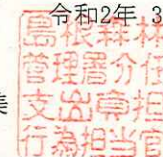 令和2年 3
島根森林
管理署分任
支出負担
行為担当官